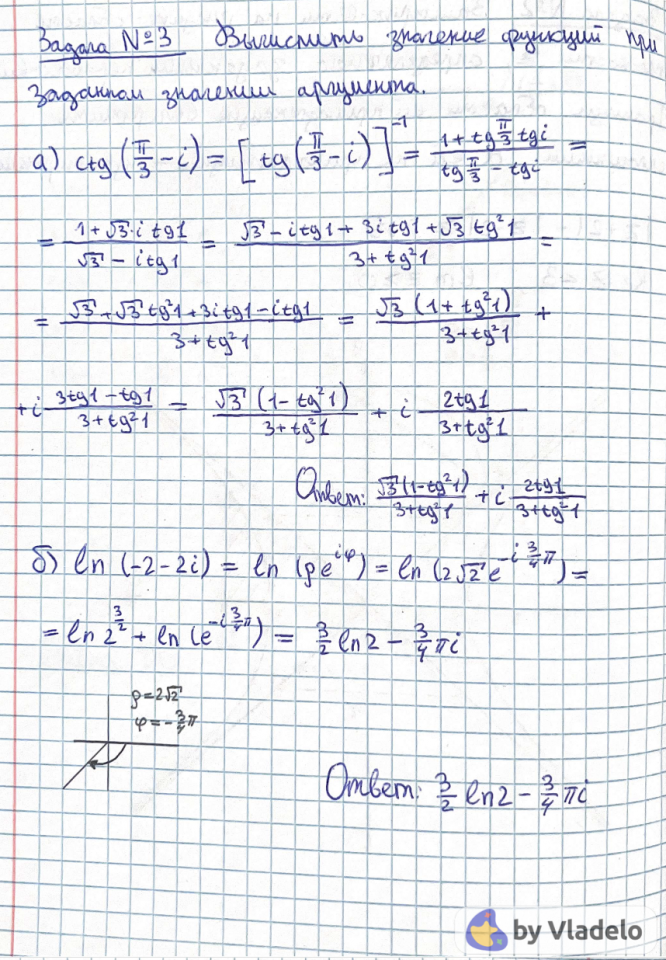 Задача №3 Вычислить значение функций при
заданном значении аргумента.
а) ctg(π/3 - i) = [tg(π/3 - i)]^-1 = (1 + tg π/3 tg i)/(tg π/3 - tg i) =
= (1 + √3·i tg1)/(√3 - i tg1) = (√3 - i tg1 + 3i tg1 + √3 tg²1)/(3 + tg²1) =
= (√3 + √3 tg²1 + 3i tg1 - i tg1)/(3 + tg²1) = √3(1 + tg²1)/(3 + tg²1) +
+ i (3tg1 - tg1)/(3 + tg²1) = √3(1 - tg²1)/(3 + tg²1) + i 2tg1/(3 + tg²1)
Ответ: √3(1 - tg²1)/(3 + tg²1) + i 2tg1/(3 + tg²1)
б) ln(-2-2i) = ln(ρe^iφ) = ln(2√2 e^(-i 3/4 π)) =
= ln 2^(3/2) + ln(e^(-i 3/4 π)) = 3/2 ln2 - 3/4 πi
ρ = 2√2
φ = -3/4 π
Ответ: 3/2 ln2 - 3/4 πi
by Vladelo